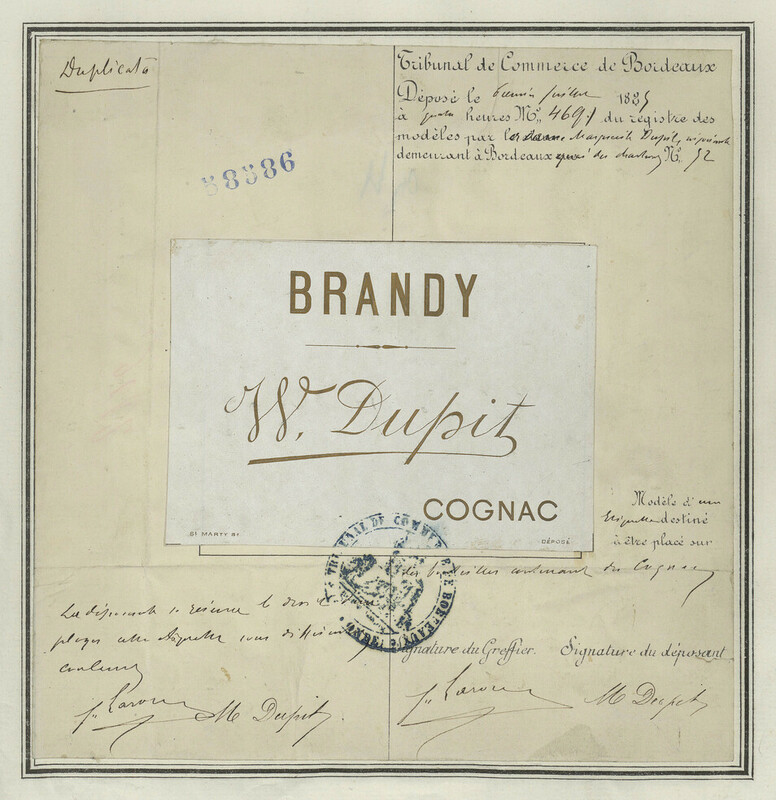 Duplicata
Tribunal de Commerce de Bordeaux
Déposé le premier juillet 188
à heures No. 469 du registre des
modèles par Marguerite Dupit,
demeurant à Bordeaux No. 52
58386
BRANDY
W. Dupit
COGNAC
MARTY
DÉPOSÉ
Modèle d'une
étiquette destiné
à être placé sur
des bouteilles contenant du Cognac
TRIBUNAL DE COMMERCE DE BORDEAUX
La déposante se réserve le droit
ployer cette étiquette sous différentes
couleurs
Signature du Greffier. Signature du déposant
M Dupit.
M Dupit